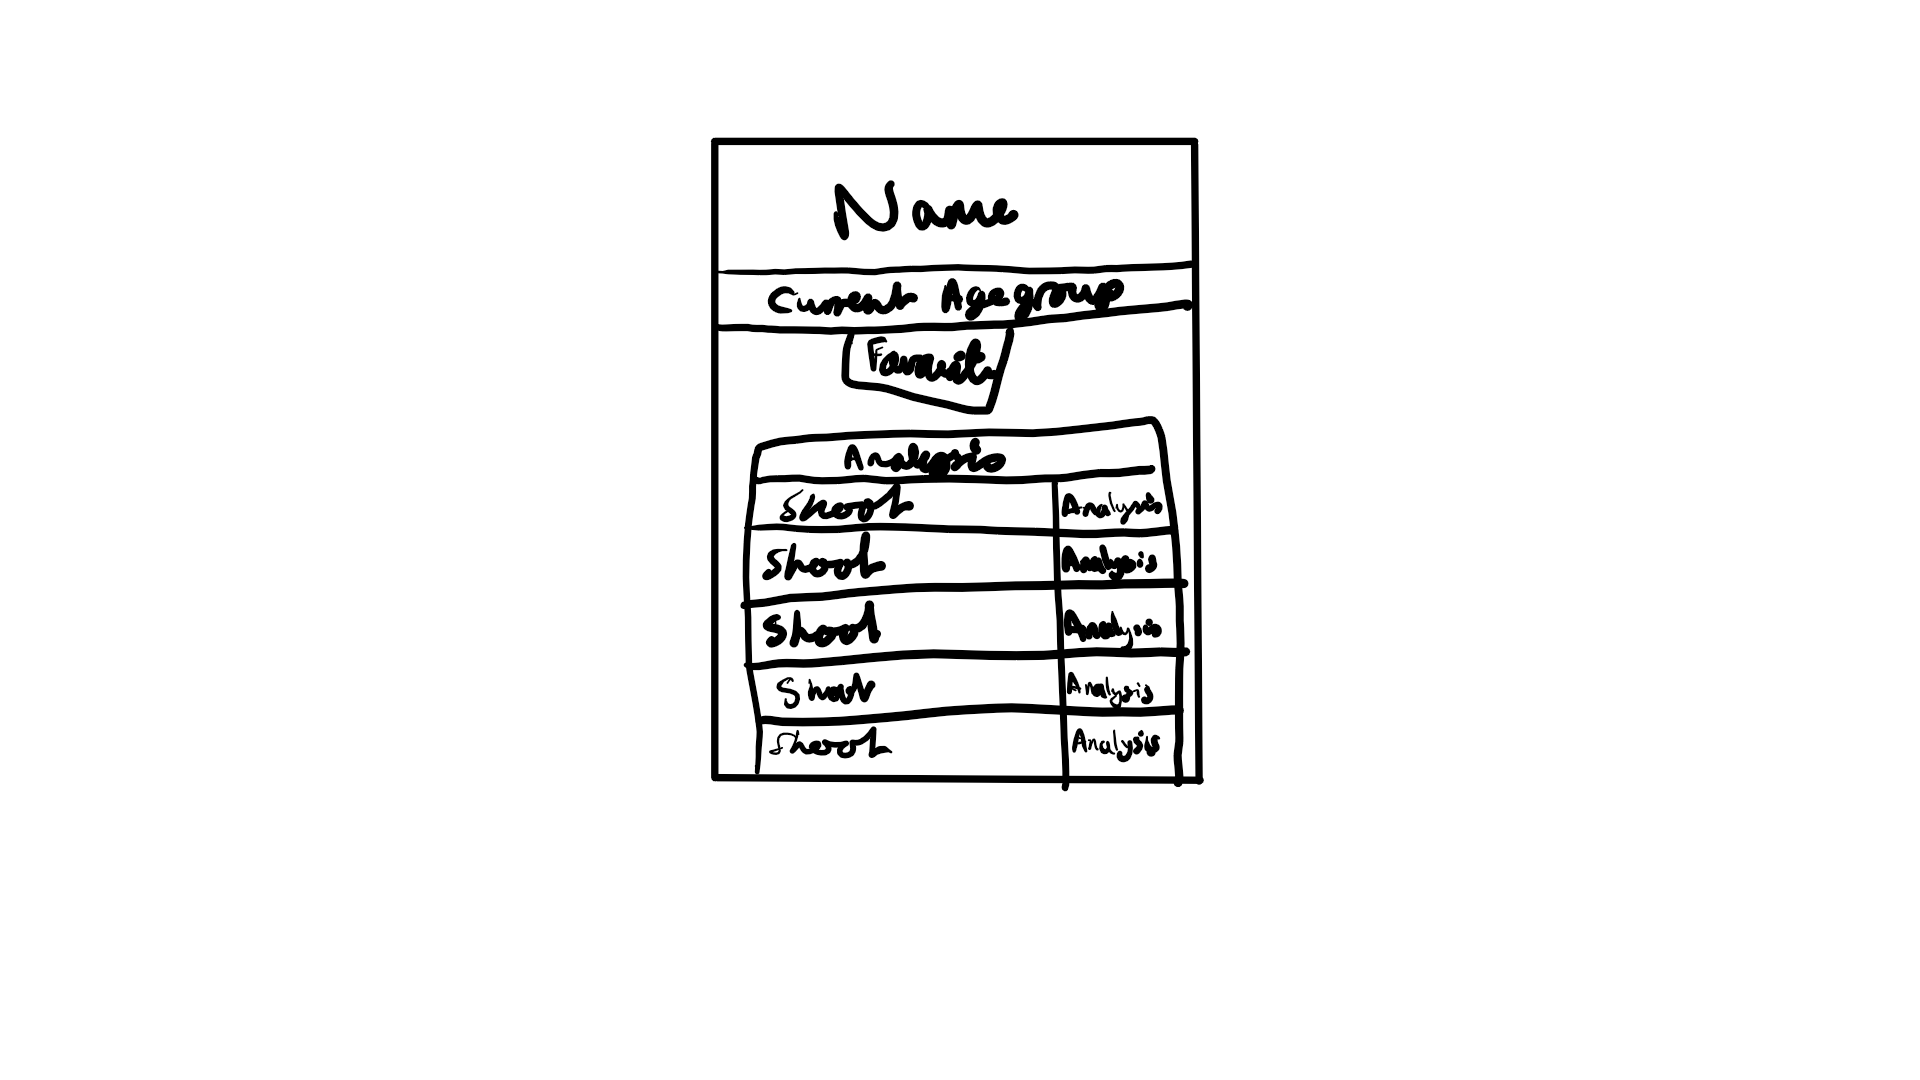 Name
Current Age group
Favourit
Analysis
Shoot Analysis
Shoot Analysis
Shoot Analysis
Shoot Analysis
Shoot Analysis